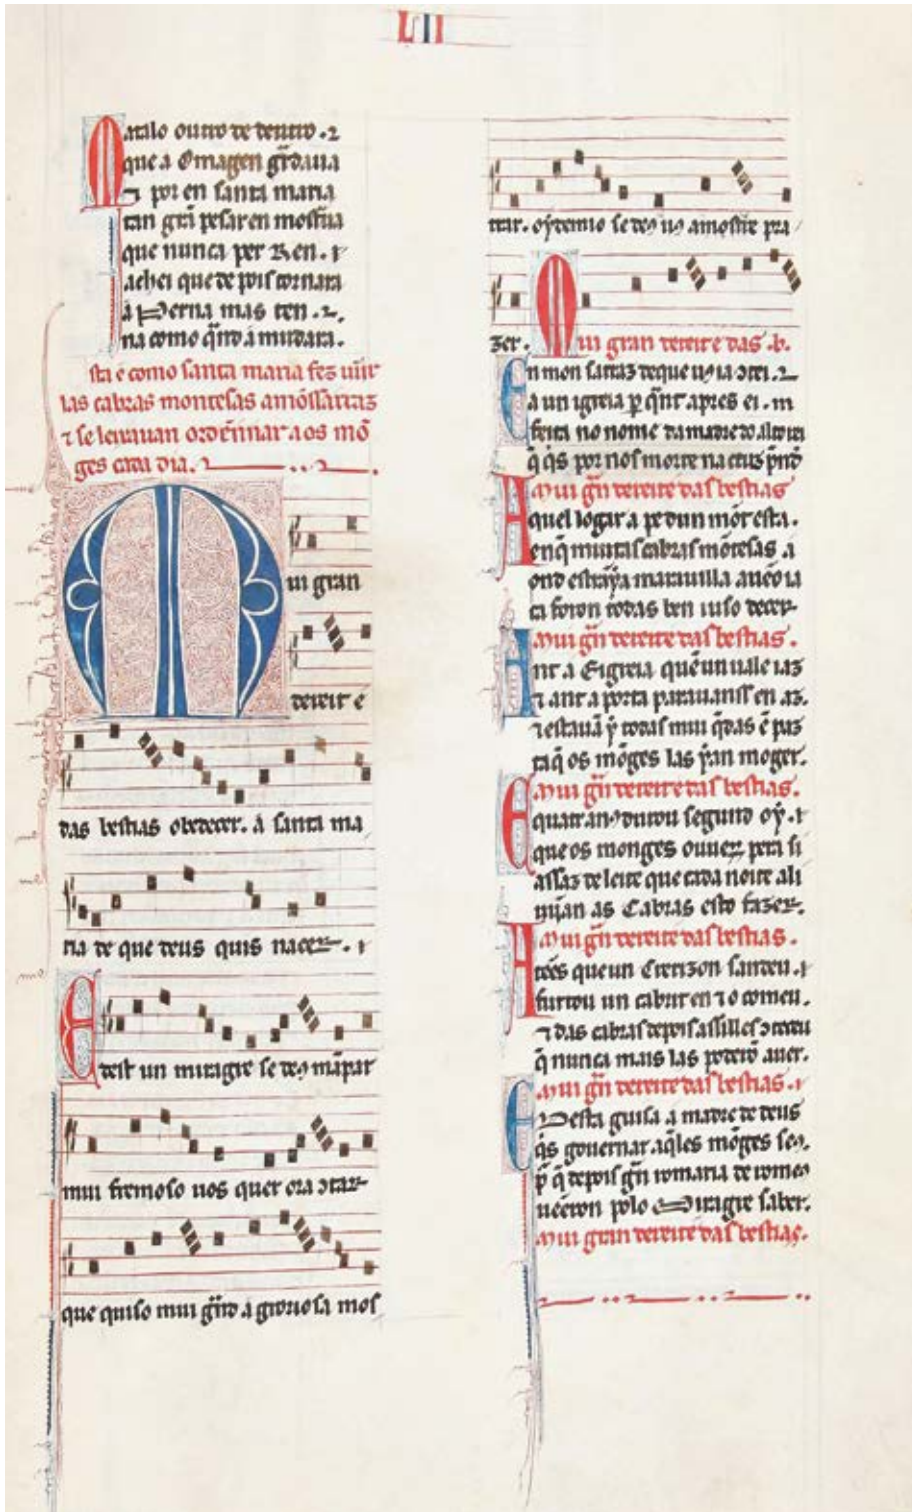 LII
Matalo outro de dentro.
que a Omagen gr̃daua
⁊ por en santa maria
tan grã pesar en mostr̃ua
que nunca per Ren.
achei que de pois tornara
a Perna mas ten.
na como qñdo a mudara.
sta e como santa maria fez uĩir
las cabras montesas a mõssarraz
⁊ se leixauan ordẽnnar aos mõ
ges cada dia.
Mui gran
dereit e
das bestias obedecer. a santa ma
ria de que deus quis nacer.
E dest un miragre se de⁹ mãpar
mui fremoso uos quer ora ↄtar
que quiso mui gr̃nd a groriosa mos
trar. oydemio se de⁹ u⁹ amostre pra
zer. Mui gran dereit e das .b.
En mon sarraz de que u⁹ ia ↄtei.
a un igreia p̱ qñt apres ei.
feita no nome da madre do alto rei
q̃ q̃s por nos morte na cruz pr̃nd
Mui gñ dereit e das bestias
Aquel logar a pe dun mõt esta.
en q̃ muitas cabras mõtesas a
ond estraỹa marauilla auẽo ia
ca foron todas ben iuso decer
Mui gñ dereit e das bestias.
Ant a Eigreia que ẽun uale iaz
⁊ ant a porta parauanss en az.
⁊ estauã ỹ todas mui q̃das ẽ paz
ta q̃ os mõges las yan moger.
Mui gñ dereit e das bestias.
E quatr an⁹ durou segund oý.
que os monges ouuerõ pera si
assaz de leite que cada noite ali
uĩjan as Cabras esto fazer.
Mui gñ dereit e das bestias.
Atẽes que un Crerizon sandeu.
furtou un cabrit en ⁊ o comeu.
⁊ das cabras depois assi lles ↄteceu
q̃ nunca mais las poderõ auer.
Mui gñ dereit e das bestias.
E Desta guisa a madre de deus
q̃s gouernar. aq̃les mõges se⁹.
p̱ q̃ depois gñ romaria de rome⁹
uẽeron polo Miragre saber.
Mui gran dereit e das bestias.